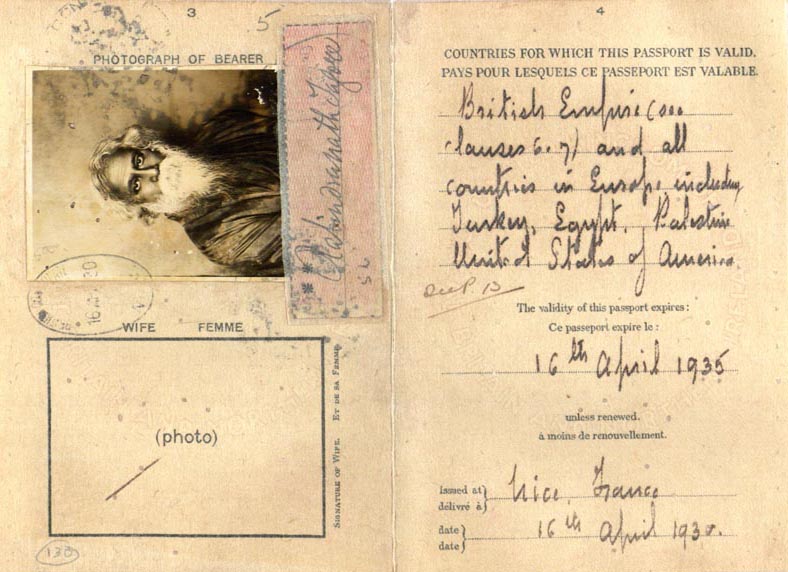 3
5
PHOTOGRAPH OF BEARER
Rabindranath Tagore
16 AP 30
WIFE FEMME
(photo)
SIGNATURE OF WIFE. ET DE SA FEMME.
138
4
COUNTRIES FOR WHICH THIS PASSPORT IS VALID.
PAYS POUR LESQUELS CE PASSEPORT EST VALABLE.
British Empire (see
clauses 6. 7) and all
countries in Europe including
Turkey, Egypt, Palestine
United States of America
The validity of this passport expires:
Ce passeport expire le:
16th April 1935
unless renewed.
à moins de renouvellement.
Issued at} Nice, France
délivré à}
date} 16th April 1930.
date}